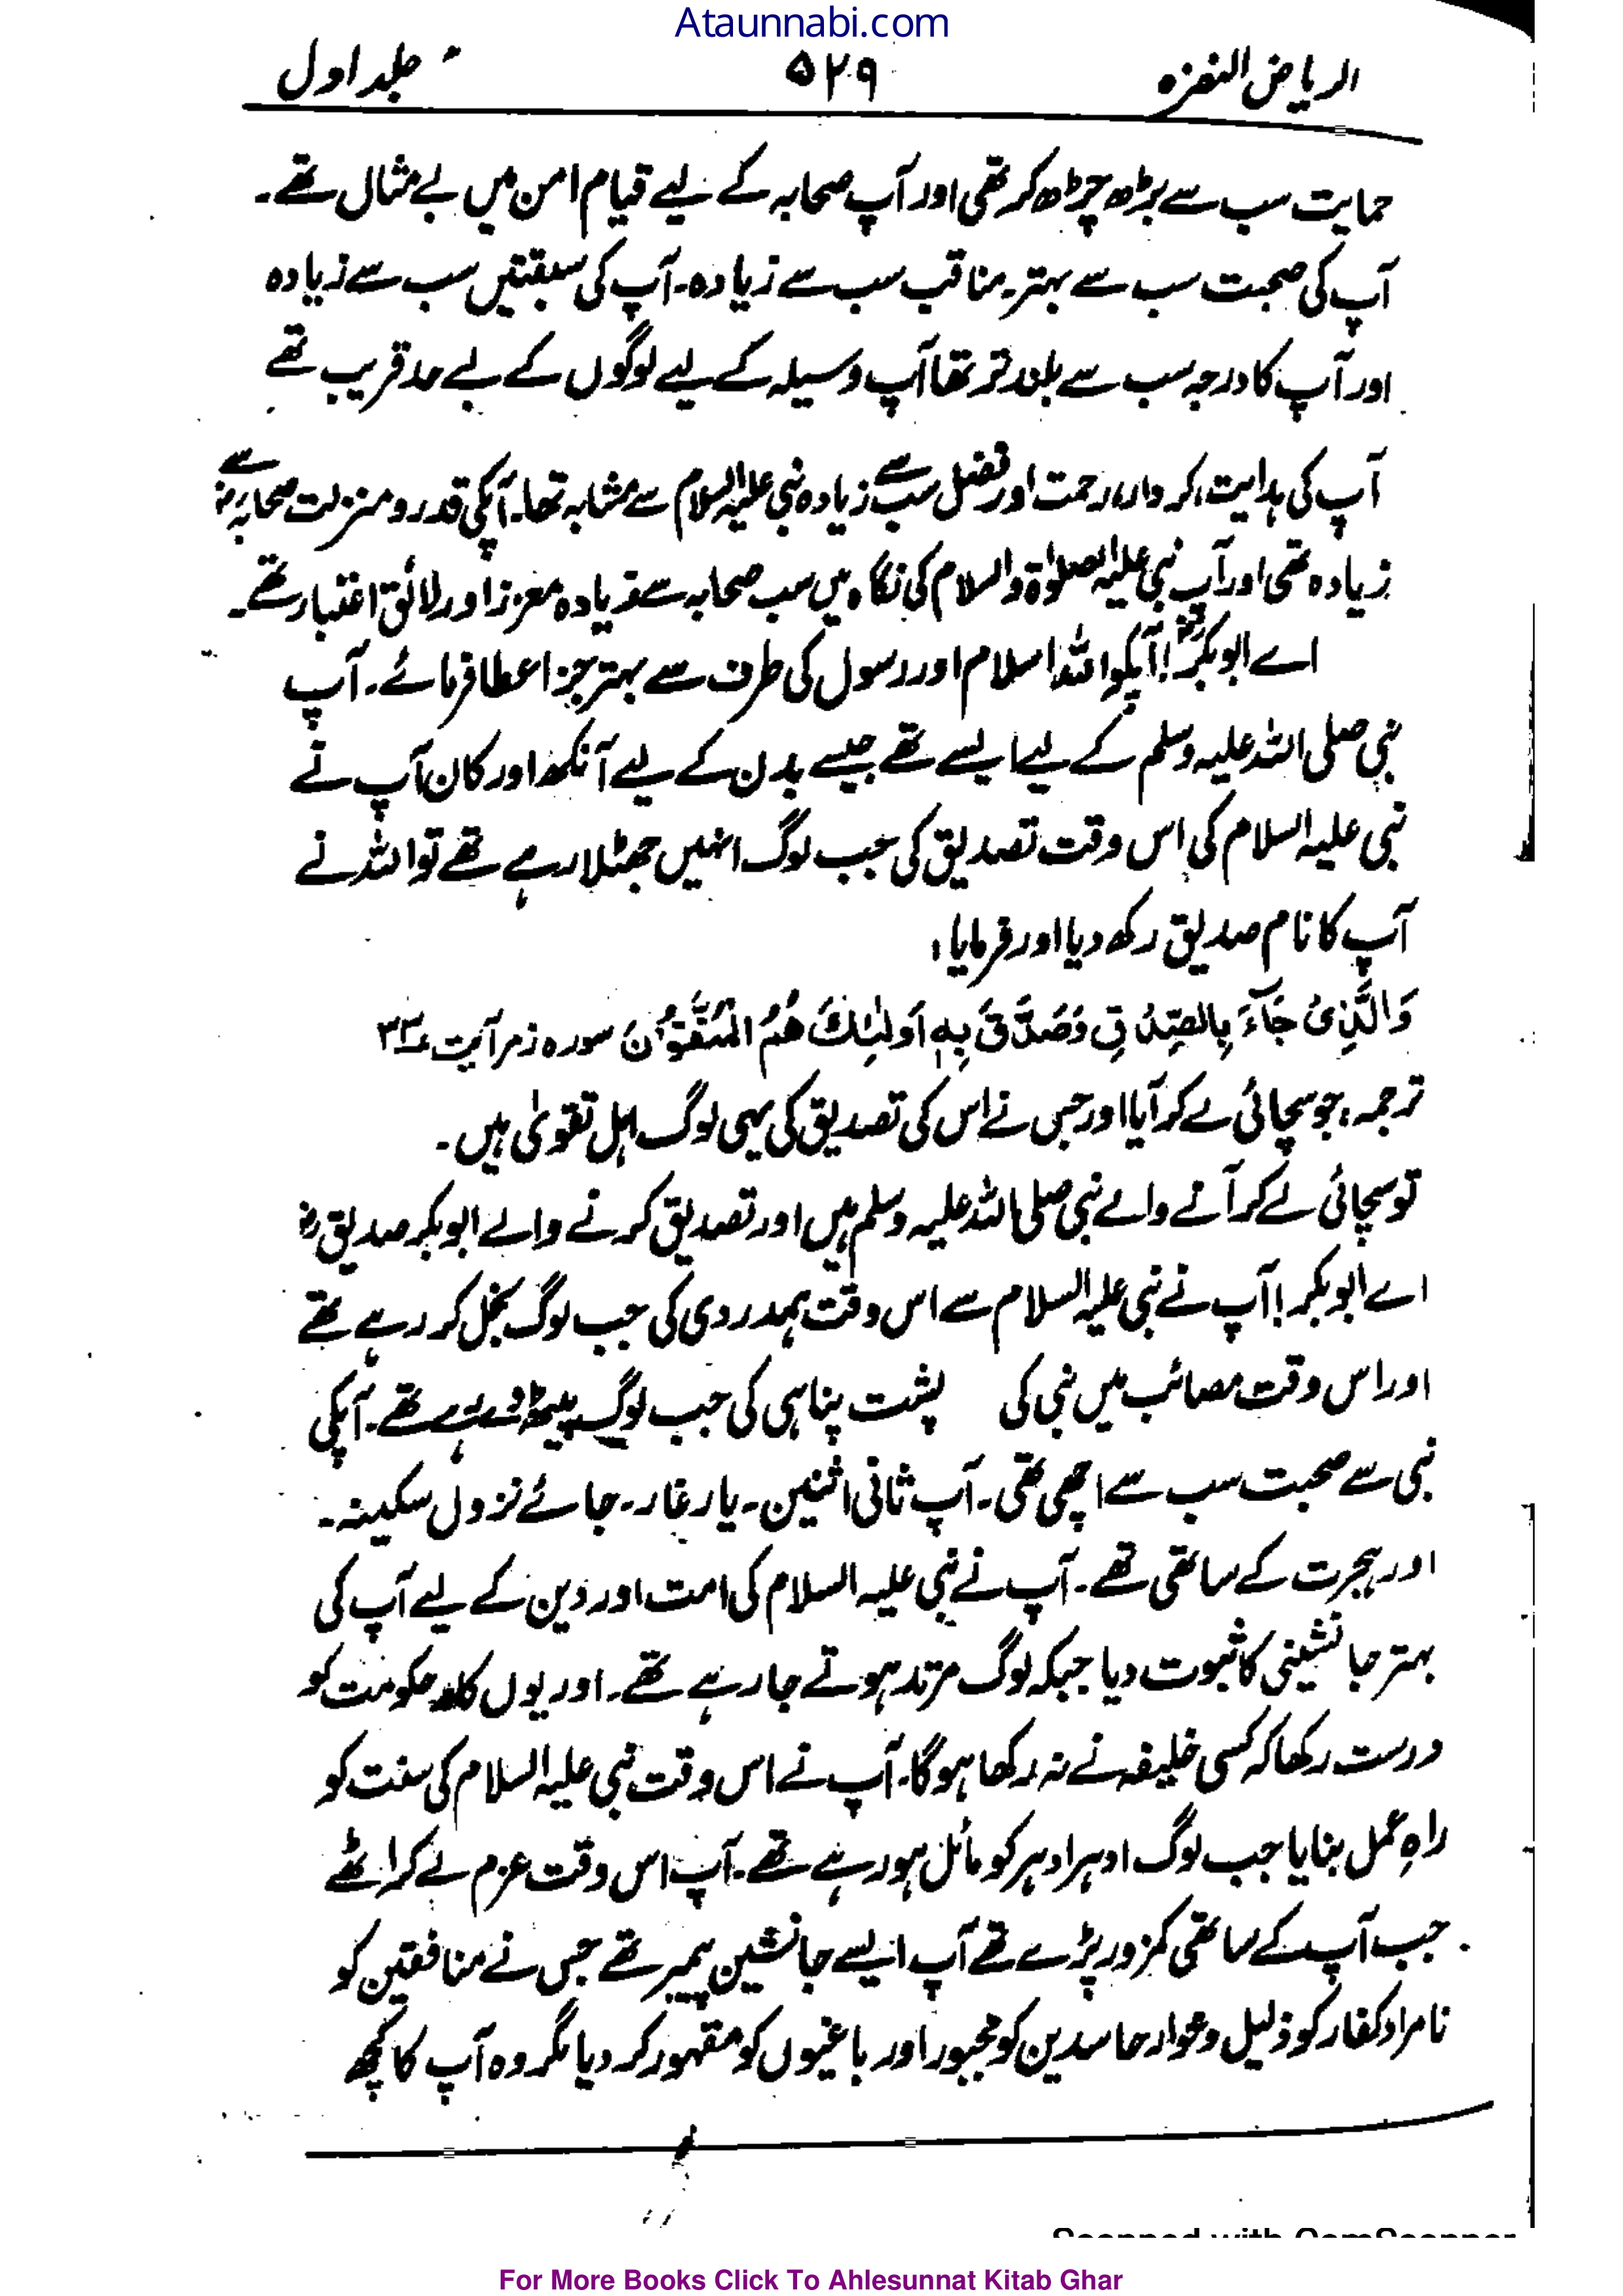 Ataunnabi.com
الریاض النضرہ ۵۲۹ جلد اول
حمایت سب سے بڑھ چڑھ کر تھی اور آپ صحابہ کے لیے قیام امن میں بے مثال تھے۔
آپ کی صحبت سب سے بہتر۔ مناقب سب سے زیادہ۔ آپ کی سبقتیں سب سے زیادہ
اور آپ کا درجہ سب سے بلند تر تھا آپ وسیلہ کے لیے لوگوں کے بے حد قریب تھے
آپ کی ہدایت، کردار، رحمت اور فضل سب سے زیادہ نبی علیہ السلام سے مشابہ تھا۔ آپکی قدر و منزلت صحابہؓ سے
زیادہ تھی اور آپ نبی علیہ الصلوٰۃ والسلام کی نگاہ میں سب صحابہ سے زیادہ معزز اور لائق اعتبار تھے۔
اے ابوبکرؓ! آپکو اللہ اسلام اور رسول کی طرف سے بہتر جزا عطا فرمائے۔ آپ
نبی صلی اللہ علیہ وسلم کے لیے ایسے تھے جیسے بدن کے لیے آنکھ اور کان آپ نے
نبی علیہ السلام کی اس وقت تصدیق کی جب لوگ انہیں جھٹلا رہے تھے تو اللہ نے
آپ کا نام صدیق رکھ دیا اور فرمایا،
وَالَّذِیْ جَآءَ بِالصِّدْقِ وَصَدَّقَ بِہٖ اُولٰٓئِكَ ھُمُ الْمُتَّقُوْنَ سورہ زمر آیت ۳۳
ترجمہ، جو سچائی لے کر آیا اور جس نے اس کی تصدیق کی یہی لوگ اہل تقویٰ ہیں۔
تو سچائی لے کر آنے والے نبی صلی اللہ علیہ وسلم ہیں اور تصدیق کرنے والے ابوبکر صدیقؓ
اے ابوبکر! آپ نے نبی علیہ السلام سے اس وقت ہمدردی کی جب لوگ بخل کر رہے تھے
اور اس وقت مصائب میں نبی کی پشت پناہی کی جب لوگ پیٹھ دے رہے تھے۔ آپکی
نبی سے صحبت سب سے اچھی تھی۔ آپ ثانی اثنین۔ یار غار۔ جائے نزول سکینہ۔
اور ہجرت کے ساتھی تھے۔ آپ نے نبی علیہ السلام کی امت اور دین کے لیے آپ کی
بہتر جانشینی کا ثبوت دیا جبکہ لوگ مرتد ہوتے جا رہے تھے۔ اور یوں حکومت کو
درست رکھا کہ کسی خلیفہ نے نہ رکھا ہوگا۔ آپ نے اس وقت نبی علیہ السلام کی سنت کو
راہِ عمل بنایا جب لوگ ادہر ادہر کو مائل ہو رہے تھے۔ آپ اس وقت عزم لے کر اٹھے
جب آپ کے ساتھی کمزور پڑے تھے آپ ایسے جانشین پیمبر تھے جس نے منافقین کو
نامراد کفار کو ذلیل و خوار حاسدین کو مجبور اور باغیوں کو مقہور کر دیا مگر وہ آپ کا کچھ
Scanned with CamScanner
For More Books Click To Ahlesunnat Kitab Ghar